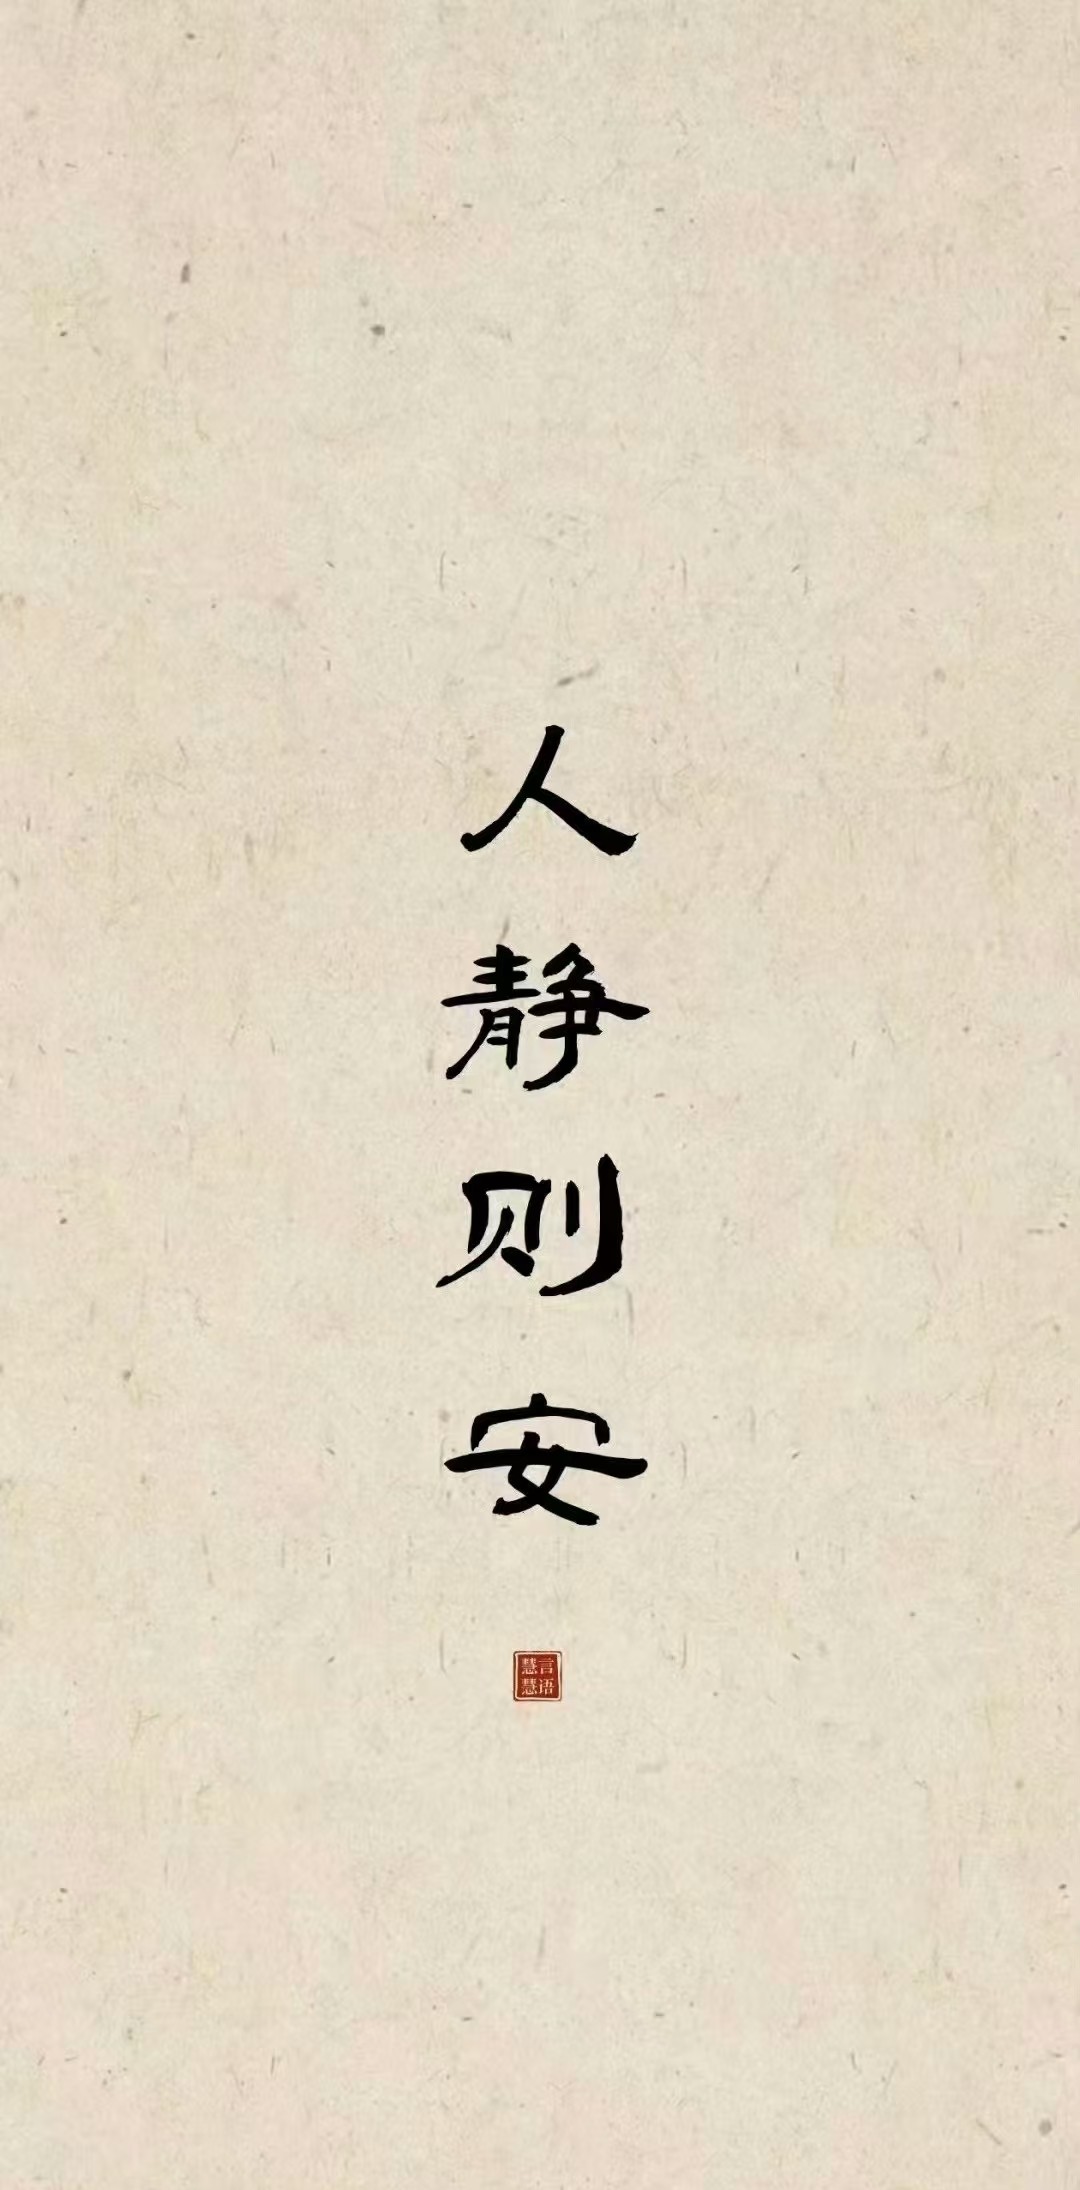 人静则安
言语
慧慧